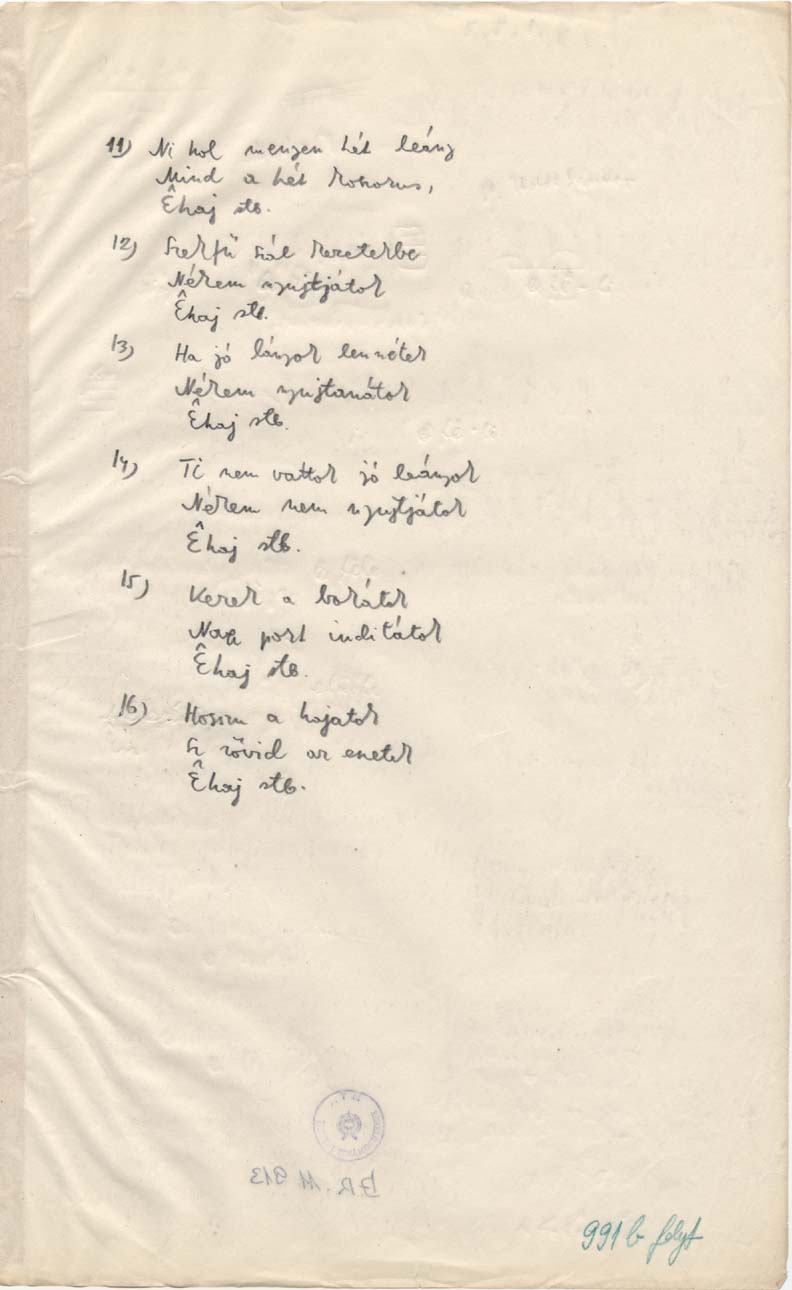 11) Ni hol menyen hét leány
Mind a hét koszorus,
Êhaj stb.
12) Szekfű szál kezetekbe
Nékem nyujtjátok
Êhaj stb.
13) Ha jó lányok lennétek
Nékem nyujtanátok
Êhaj stb.
14) Ti nem vattok jó leányok
Nékem nem nyujtjátok
Êhaj stb.
15) Kerek a bokátok
Nagy port inditátok
Êhaj stb.
16) Hosszu a hajatok
Sz rövid az eszetek
Êhaj stb.
BR. 11 913
991 b folyt